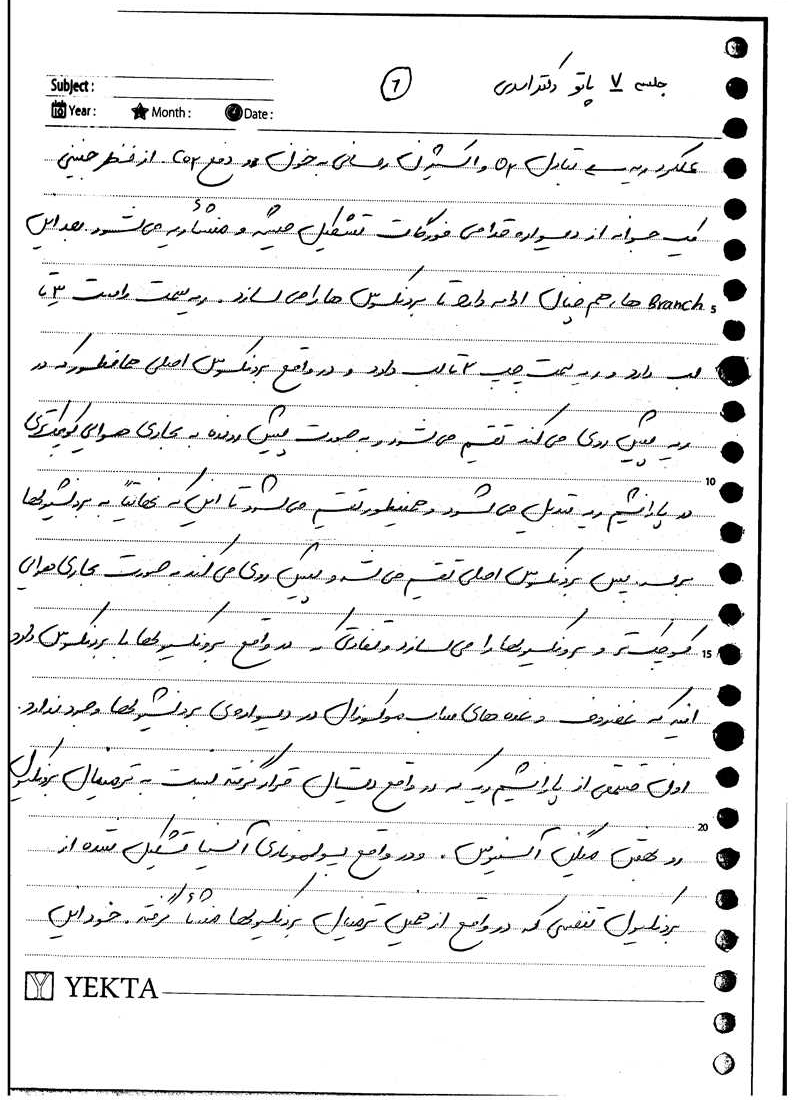 جلسه ۷ پاتو دکتر اسدی
1
Subject:
Year: Month: Date:
عملکرد ریه سے تبادل O2 و اکسیژن رسانی به خون و دفع CO2. از نظر جنینی
یک جوانه از دیواره قدامی فورگات تشکیل میشه و منشأ ریه می‌شود. بعد این
Branch ها، هم چنان ادامه داره تا برونکوس ها را می سازد. ریه سمت راست ۳ تا 5
لب دارد و ریه سمت چپ ۲ تا لب دارد و در واقع برونکوس اصلی همانطور که در
ریه پیش روی می کند تقسیم می شود و به صورت پیش رونده به مجاری هوایی کوچکتری
در پارانشیم ریه تبدیل می شود و همینطور تقسیم می شود تا این که نهایتاً به برونشیولها 10
برسد. پس برونکوس اصلی تقسیم می شه و پیش روی می کند به صورت مجاری هوایی
کوچک تر و برونکیولها را می سازد و تفاوتی که در واقع برونکیولها با برونکوس دارد 15
اینه که غضروف و غده های ساب موکوزال در دیواره‌ی برونشیولها وجود ندارد.
اولین قسمتی از پارانشیم ریه که در واقع دیستال قرار گرفته نسبت به ترمینال برونکیول
رو بهش میگن آسینوس. و در واقع پولمونری آسینا تشکیل شده از 20
برونکیول تنفسی که در واقع از همین ترمینال برونکیولها منشأ گرفته. خود این
YEKTA